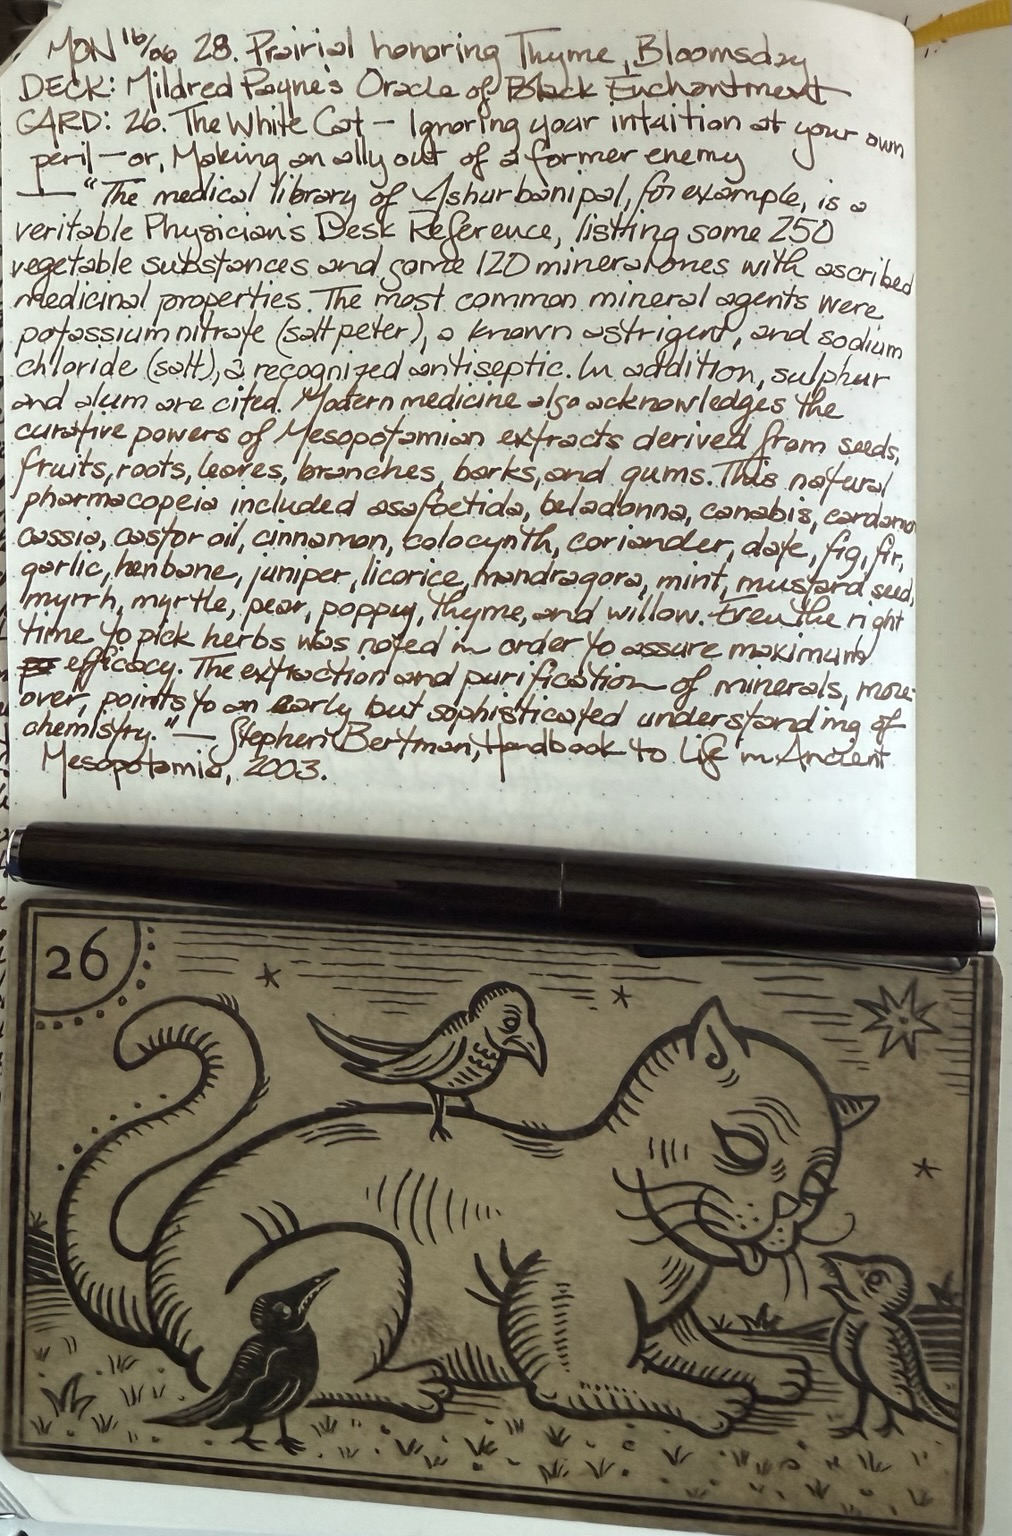 MON 16/06 28. Prairial honoring Thyme, Bloomsday
DECK: Mildred Payne's Oracle of Black Enchantment
CARD: 26. The White Cat – Ignoring your intuition at your own
peril – or, Making an ally out of a former enemy
— "The medical library of Ashurbanipal, for example, is a
veritable Physician's Desk Reference, listing some 250
vegetable substances and some 120 mineral ones with ascribed
medicinal properties. The most common mineral agents were
potassium nitrate (saltpeter), a known astrigent, and sodium
chloride (salt), a recognized antiseptic. In addition, sulphur
and alum are cited. Modern medicine also acknowledges the
curative powers of Mesopotamian extracts derived from seeds,
fruits, roots, leaves, branches, barks, and gums. This natural
pharmacopeia included asafoetida, beladonna, canabis, cardamo
cassia, castor oil, cinnamon, colocynth, coriander, date, fig, fir,
garlic, henbane, juniper, licorice, mandragora, mint, mustard seed,
myrrh, myrtle, pear, poppy, thyme, and willow. Even the right
time to pick herbs was noted in order to assure maximum
efficacy. The extraction and purification of minerals, more-
over, points to an early but sophisticated understanding of
chemistry." — Stephen Bertman, Handbook to Life in Ancient
Mesopotamia, 2003.
26